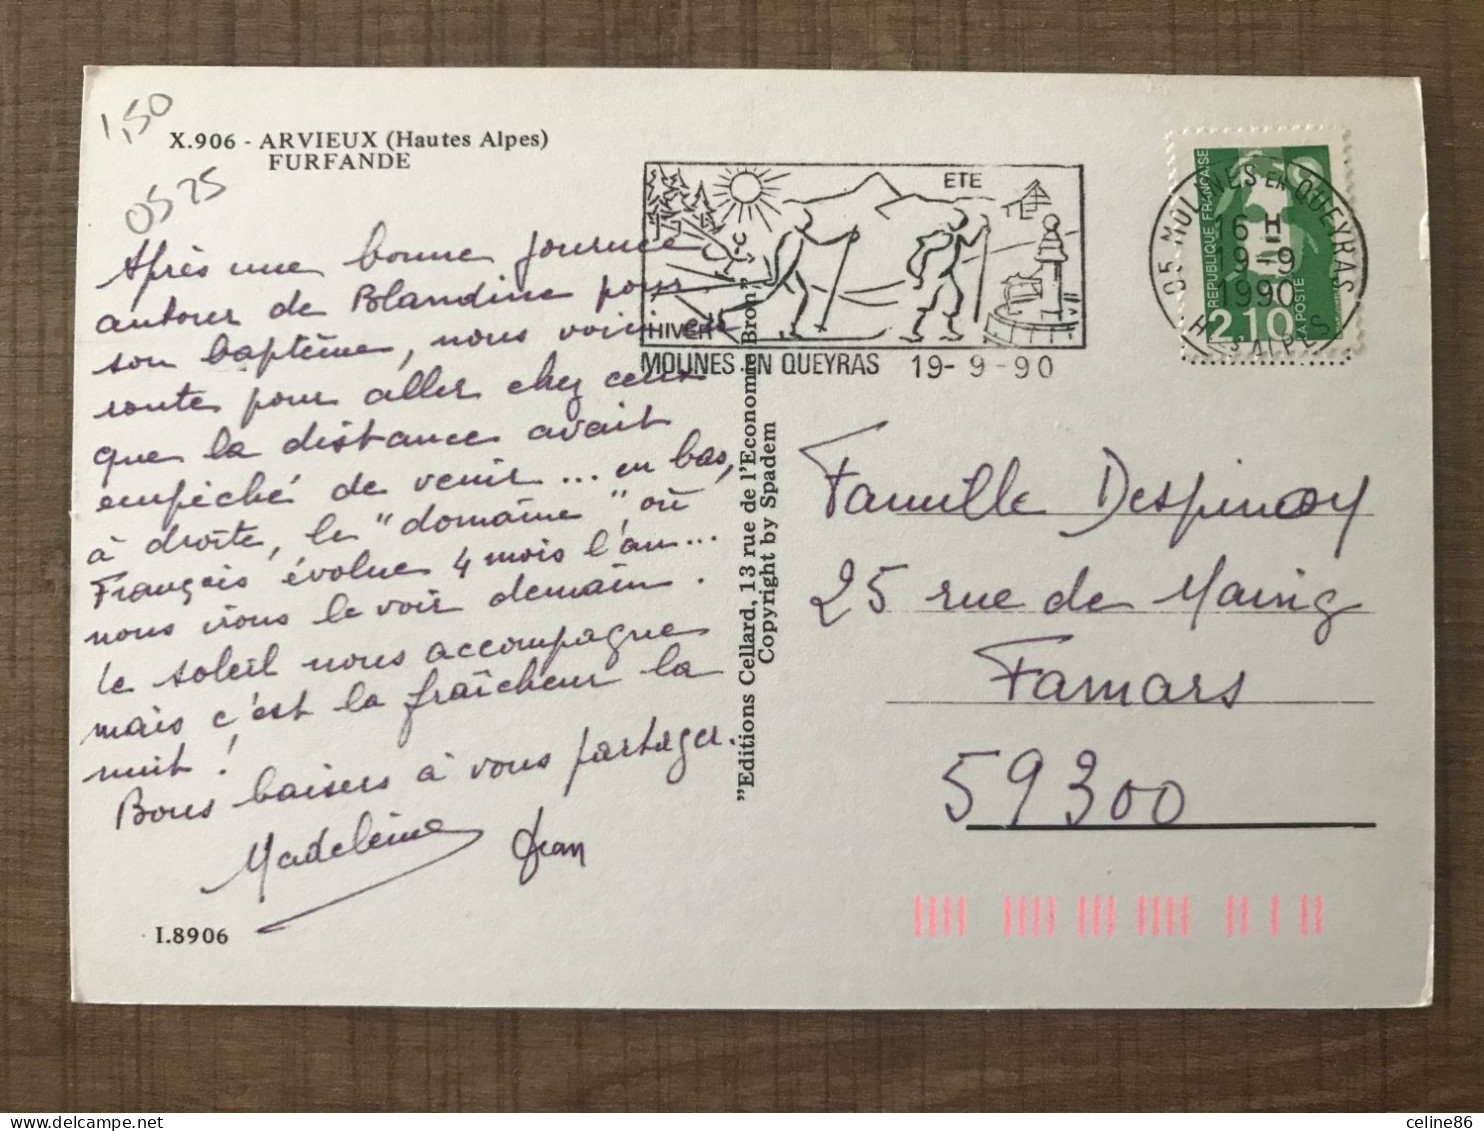 1,50
X.906 - ARVIEUX (Hautes Alpes)
FURFANDE
0525
Après une bonne journée
autour de Blandine pour
son baptême, nous voici en
route pour aller chez ceux
que la distance avait
empêché de venir ... en bas,
à droite, le "domaine", où
François évolue 4 mois l'an...
nous irons le voir demain.
Le soleil nous accompagne
mais c'est la fraîcheur la
nuit !
Bons baisers à vous partager.
Madeleine Jean
I.8906
"Editions Cellard, 13 rue de l'Economie Bron"
Copyright by Spadem
ETE
HIVER
MOLINES EN QUEYRAS 19-9-90
05 MOLINES EN QUEYRAS
16 H
19-9
1990
HTES ALPES
REPUBLIQUE FRANÇAISE
2,10
LA POSTE
Famille Despinoy
25 rue de Maing
Famars
59300
celine86